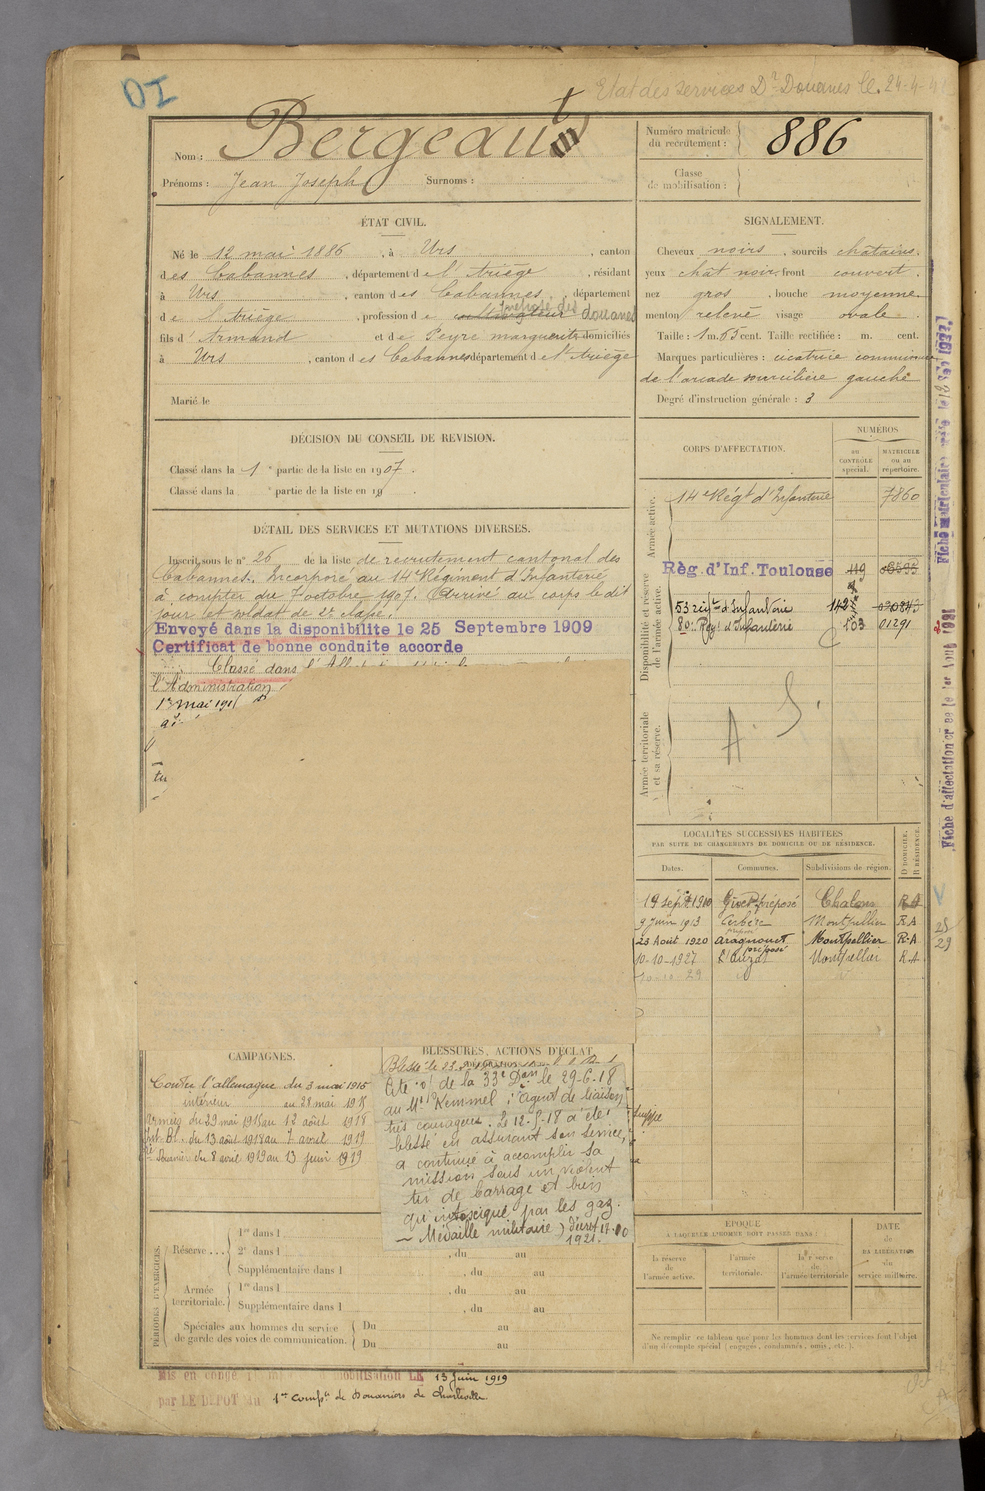 DI
Etat des services Dr. Douanes le. 24-4-
Nom : Bergeaut
Numéro matricule du recrutement : 886
Prénoms : Jean Joseph Surnoms :
Classe de mobilisation :
ÉTAT CIVIL.
Né le 12 mai 1886, à Urs, canton
des Cabannes, département de l'Ariège, résidant
à Urs, canton des Cabannes, département
de l'Ariège, profession de cultivateur préposé des douanes
fils d'Armand et de Peyre marguerite domiciliés
à Urs, canton des Cabannes département de l'Ariège
Marié le
SIGNALEMENT.
Cheveux noirs, sourcils chatains.
yeux chat noir, front couvert.
nez gros, bouche moyenne.
menton relevé visage ovale.
Taille : 1 m. 65 cent. Taille rectifiée : m. cent.
Marques particulières : cicatrice
de l'arcade sourcilière gauche
Degré d'instruction générale : 3
DÉCISION DU CONSEIL DE REVISION.
Classé dans la 1e partie de la liste en 1907.
Classé dans la e partie de la liste en 19 .
DÉTAIL DES SERVICES ET MUTATIONS DIVERSES.
Inscrit sous le n° 26 de la liste de recrutement cantonal des
Cabannes. Incorporé au 14e Régiment d'Infanterie
à compter du 7 octobre 1907. Arrivé au corps le dit
jour et soldat de 2e classe.
Envoyé dans la disponibilite le 25 Septembre 1909
Certificat de bonne conduite accorde
Classé dans
l'Administration
1er mai 191
CORPS D'AFFECTATION.
NUMÉROS
au CONTRÔLE spécial.
MATRICULE ou au répertoire.
Armée active.
14e Régt d'Infanterie 7860
Disponibilité et réserve de l'armée active.
Règ. d'Inf. Toulouse 119
53 régt d'Infanterie 142
80e Régt d'Infanterie 103 01291
A. S.
Armée territoriale et sa réserve.
LOCALITÉS SUCCESSIVES HABITÉES
PAR SUITE DE CHANGEMENTS DE DOMICILE OU DE RÉSIDENCE.
D DOMICILE. R RÉSIDENCE.
Dates. Communes. Subdivisions de région.
19 sept 1910 Givet préposé Chalons R A
9 Juin 1913 Cerbère Montpellier R A
23 Août 1920 Aragnouet Montpellier R-A
10-10-1927 préposé Montpellier R.A
29
28
29
Fiche matriculaire
Fiche d'affectation créée le 1er Août 1921
CAMPAGNES.
Contre l'allemagne du 3 mai 1915
intérieur au 28 mai 1915
Armées du 29 mai 1915 au 12 août 1918
Int. Bl. du 13 août 1918 au 7 avril 1919
Douanier du 8 avril 1919 au 13 juin 1919
BLESSURES, ACTIONS D'ÉCLAT,
Blessé le 23
Cité o/ de la 33e Don le 29-6-18
au Mt Kemmel ; "agent de liaison
très courageux. Le 12-5-18 a été
blessé en assurant son service,
a continué à accomplir sa
mission sous un violent
tir de barrage et bien
qu'intoxiqué par les gaz.
— Médaille militaire, décret
1921.
PÉRIODES D'EXERCICES.
Réserve... 1re dans l
2e dans l , du au
Supplémentaire dans l , du au
Armée territoriale. 1re dans l , du au
Supplémentaire dans l , du au
Spéciales aux hommes du service de garde des voies de communication. Du au
Du au
ÉPOQUE
À LAQUELLE L'HOMME DOIT PASSER DANS :
la réserve de l'armée active.
l'armée territoriale.
la réserve de l'armée territoriale
DATE de LA LIBÉRATION du service militaire.
Ne remplir ce tableau que pour les hommes dont les services font l'objet
d'un décompte spécial (engagés, condamnés, omis, etc.).
Mis en congé mobilisation LE 13 Juin 1919
par LE DÉPOT du 1re Compie de Douaniers de Charleville